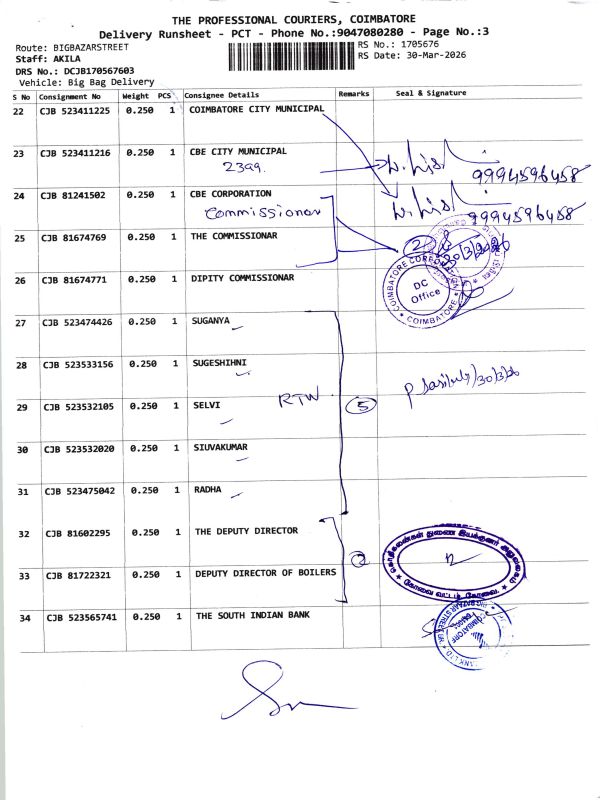 THE PROFESSIONAL COURIERS, COIMBATORE
Delivery Runsheet - PCT - Phone No.:9047080280 - Page No.:3
Route: BIGBAZARSTREET
RS No.: 1705676
Staff: AKILA
RS Date: 30-Mar-2026
DRS No.: DCJB170567603
Vehicle: Big Bag Delivery
S No Consignment No Weight PCS Consignee Details Remarks Seal & Signature
22 CJB 523411225 0.250 1 COIMBATORE CITY MUNICIPAL
23 CJB 523411216 0.250 1 CBE CITY MUNICIPAL
2399.
9994596458
24 CJB 81241502 0.250 1 CBE CORPORATION
Commissionar
9994596458
25 CJB 81674769 0.250 1 THE COMMISSIONAR
2
30/3/2026
26 CJB 81674771 0.250 1 DIPITY COMMISSIONAR
COIMBATORE CORPORATION
DC
Office
COIMBATORE
27 CJB 523474426 0.250 1 SUGANYA
28 CJB 523533156 0.250 1 SUGESHIHNI
30/3/26
RTW
29 CJB 523532105 0.250 1 SELVI
5
30 CJB 523532020 0.250 1 SIUVAKUMAR
31 CJB 523475042 0.250 1 RADHA
32 CJB 81602295 0.250 1 THE DEPUTY DIRECTOR
2
33 CJB 81722321 0.250 1 DEPUTY DIRECTOR OF BOILERS
கொதிகலன்கள் துணை இயக்குனர் அலுவலகம்
கோவை வட்டம், கோவை.
34 CJB 523565741 0.250 1 THE SOUTH INDIAN BANK